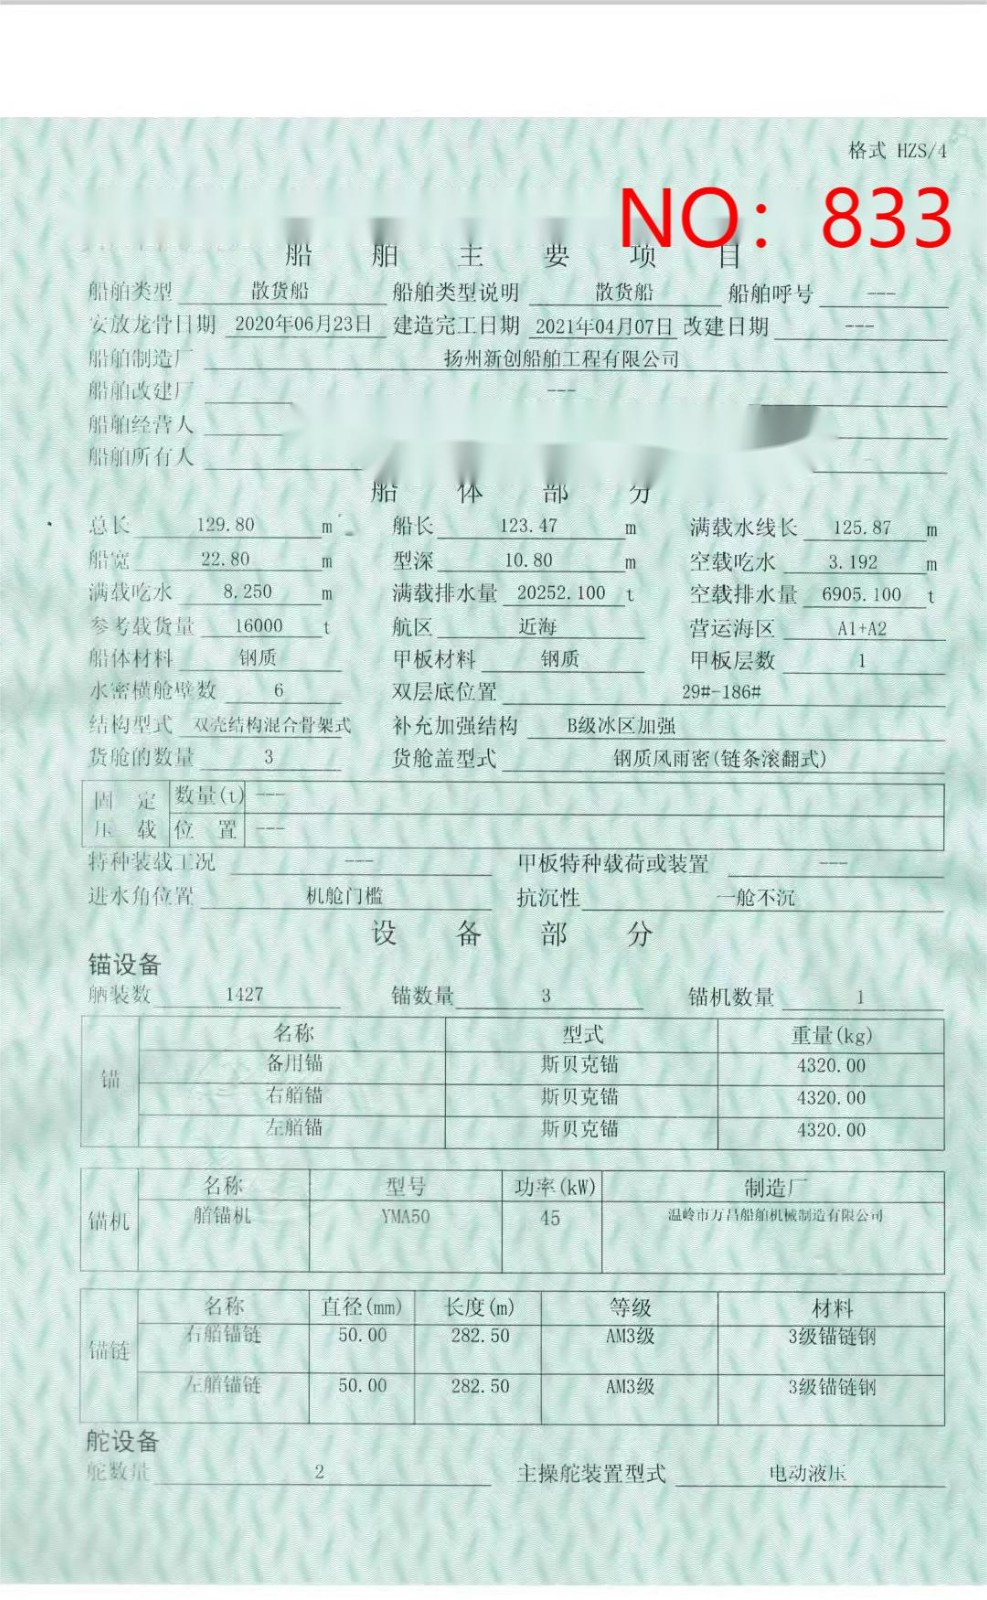 格式 HZS/4
NO：833
船舶主要项目
船舶类型 散货船 船舶类型说明 散货船 船舶呼号 ---
安放龙骨日期 2020年06月23日 建造完工日期 2021年04月07日 改建日期 ---
船舶制造厂 扬州新创船舶工程有限公司
船舶改建厂 ---
船舶经营人
船舶所有人
船体部分
总长 129.80 m 船长 123.47 m 满载水线长 125.87 m
船宽 22.80 m 型深 10.80 m 空载吃水 3.192 m
满载吃水 8.250 m 满载排水量 20252.100 t 空载排水量 6905.100 t
参考载货量 16000 t 航区 近海 营运海区 A1+A2
船体材料 钢质 甲板材料 钢质 甲板层数 1
水密横舱壁数 6 双层底位置 29#-186#
结构型式 双壳结构混合骨架式 补充加强结构 B级冰区加强
货舱的数量 3 货舱盖型式 钢质风雨密(链条滚翻式)
固定 数量(t) ---
压载 位置 ---
特种装载工况 --- 甲板特种载荷或装置 ---
进水角位置 机舱门槛 抗沉性 一舱不沉
设备部分
锚设备
舾装数 1427 锚数量 3 锚机数量 1
名称 型式 重量(kg)
锚 备用锚 斯贝克锚 4320.00
右艏锚 斯贝克锚 4320.00
左艏锚 斯贝克锚 4320.00
名称 型号 功率(kW) 制造厂
锚机 艏锚机 YMA50 45 温岭市万昌船舶机械制造有限公司
名称 直径(mm) 长度(m) 等级 材料
锚链 右艏锚链 50.00 282.50 AM3级 3级锚链钢
左艏锚链 50.00 282.50 AM3级 3级锚链钢
舵设备
舵数量 2 主操舵装置型式 电动液压